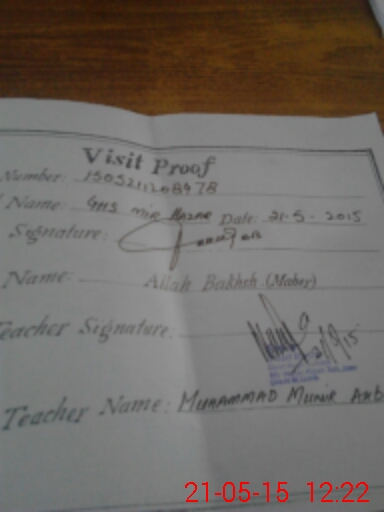 Visit Proof
Number: 1505211208478
Name: GHS Mir Hazar Date: 21-5-2015
Signature:
Name: Allah Bakhsh (Maher)
Teacher Signature: 21/5/15
Teacher Name: MUHAMMAD MUNIR
21-05-15 12:22